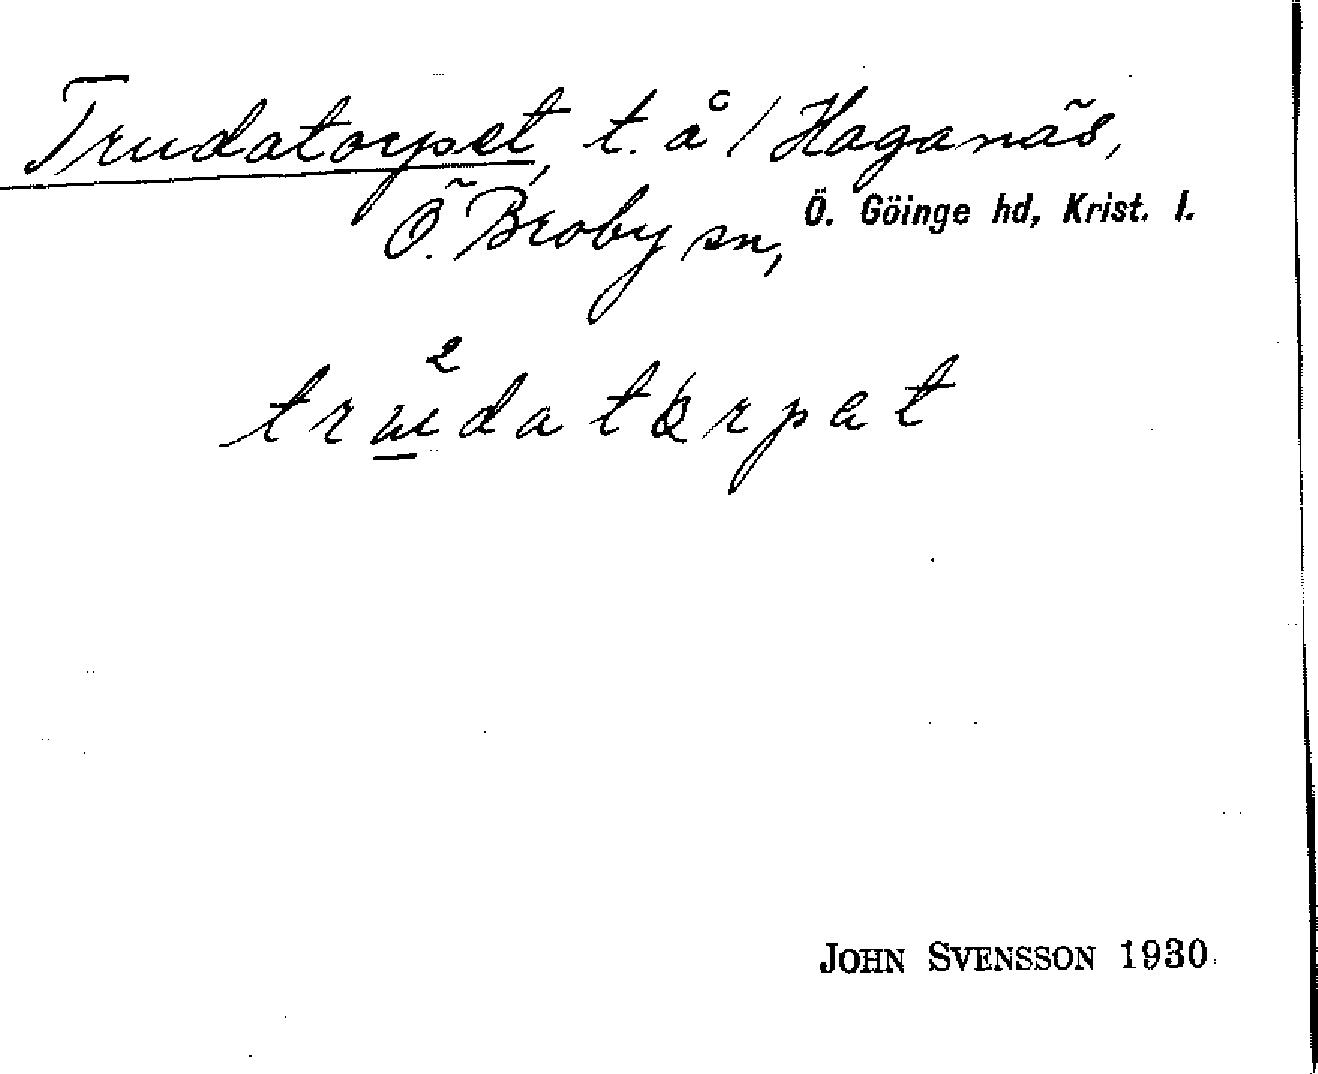 Trudatorpet, t. å / Haganäs,
Ö. Broby sn, Ö. Göinge hd, Krist. l.
2
trudatorpat
JOHN SVENSSON 1930